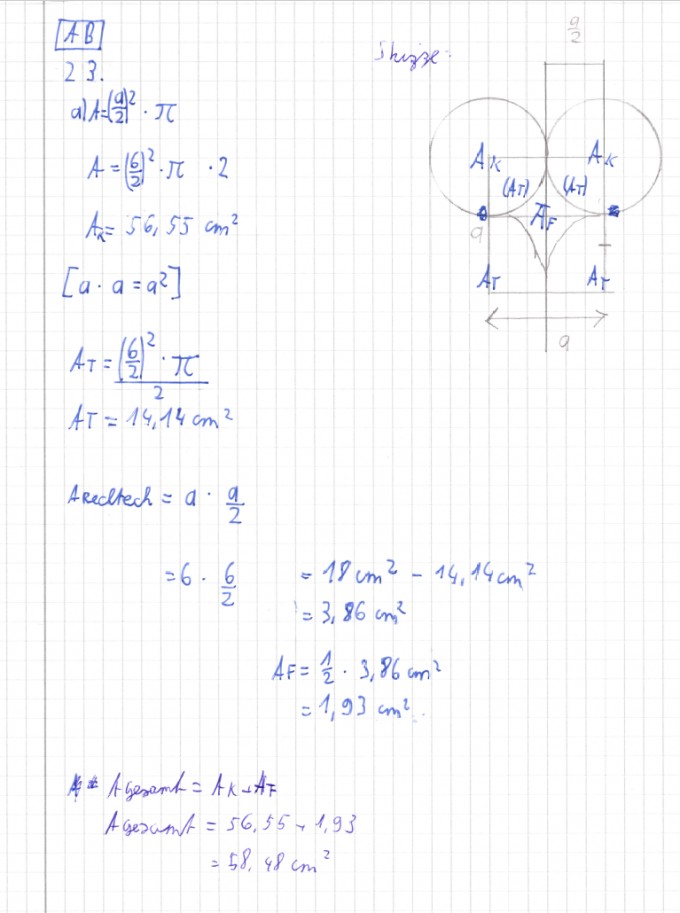 AB
23.
a) A = (a/2)² · π
A = (6/2)² · π · 2
A_K = 56,55 cm²
[a · a = a²]
A_T = (6/2)² · π / 2
A_T = 14,14 cm²
A_Rechteck = a · a/2
= 6 · 6/2 = 18 cm² - 14,14 cm²
= 3,86 cm²
A_F = 1/2 · 3,86 cm²
= 1,93 cm²
A_gesamt = A_K + A_F
A_gesamt = 56,55 + 1,93
= 58,48 cm²
Skizze:
a/2
A_K A_K
(A_T) (A_T)
A_F
a
A_T A_T
a